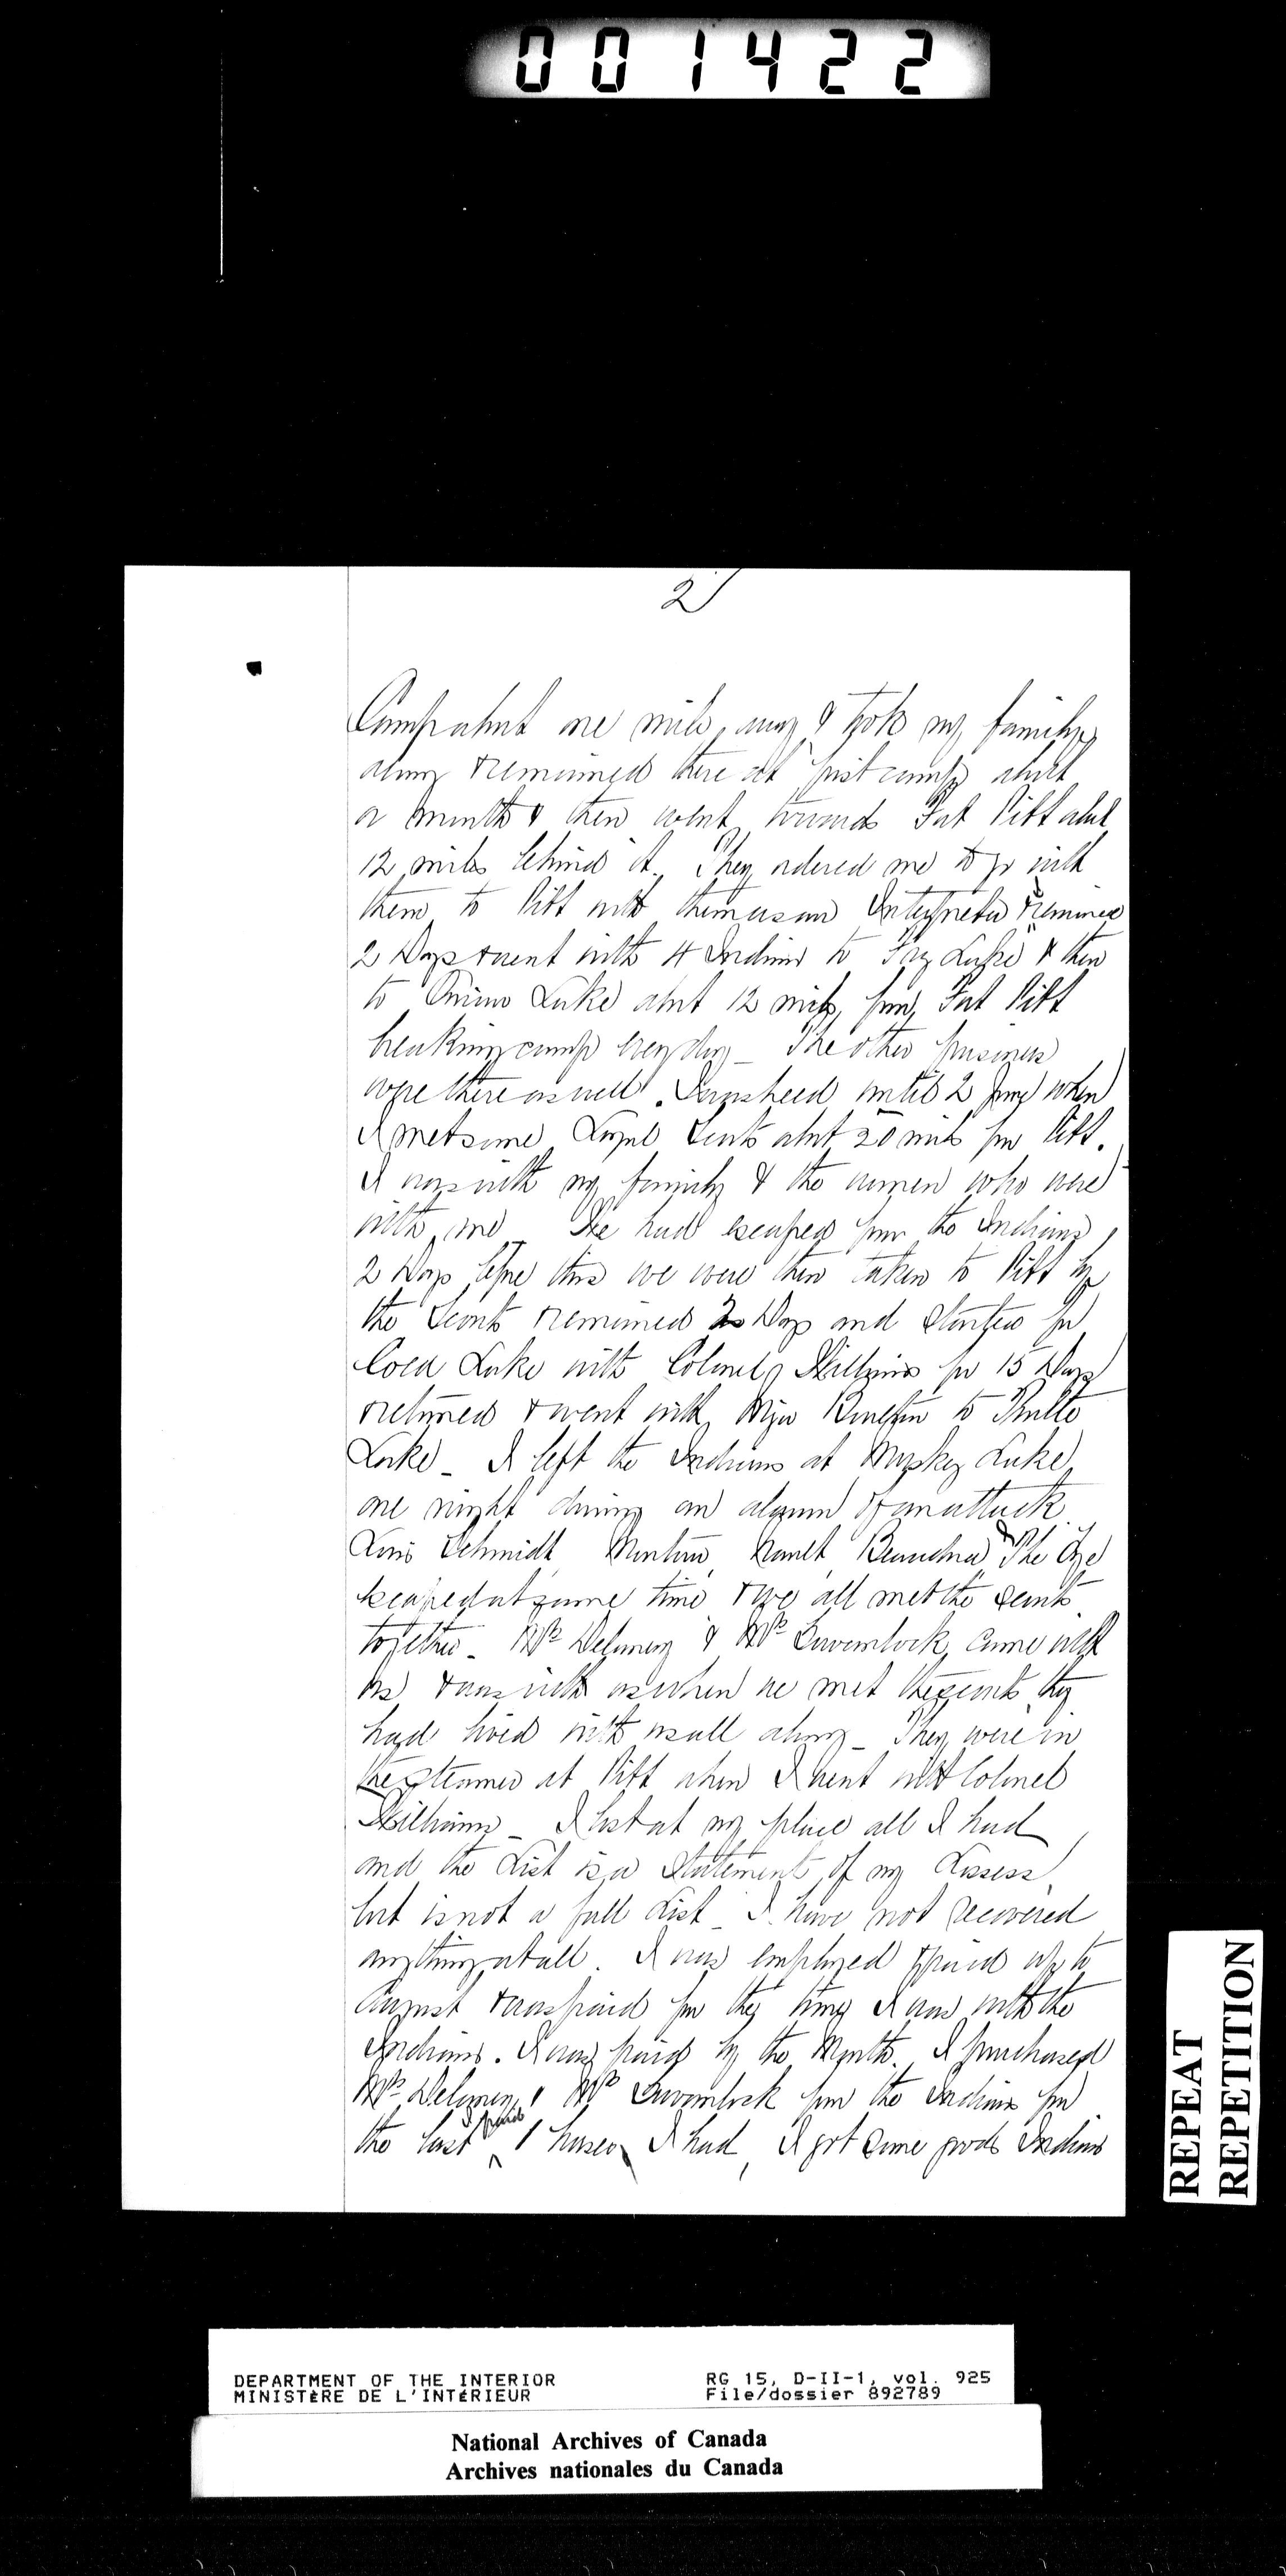 001422
2
Camp about one mile away & took my family
along & remained there at first camp about
a month & then went towards Fort Pitt about
12 miles behind it. They ordered me to go with
them to Pitt with them as an Interpreter & remained
2 Days & went with 4 Indians to Lake & then
to Onion Lake about 12 miles from Fort Pitt
breaking camp every day _ The other prisoners
were there as well. until 2 June when
I met some Loyal Scouts about 20 miles from Pitt.
I was with my family & the women who were
with me _ We had escaped from the Indians
2 Days before this we were then taken to Pitt by
the Scouts remained 2 Days and started for
Cold Lake with Colonel Williams for 15 Days
returned & went with Major to
Lake _ I left the Indians at Muskeg Lake
one night during an alarm of an attack
Louis Schmidt & The
escaped at same time & we all met the Scouts
together _ Mrs Delaney & Mrs Gowenlock came with
us & was with us when we met the scouts they
had lived with us all along _ They were in
the steamer at Pitt when I went with Colonel
Williams _ I lost at my place all I had
and the List is a Statement of my Losses
but is not a full List _ I have not recovered
anything at all. I was employed & paid up to
August & was paid for the time I was with the
Indians. I was paid by the Month. I purchased
Mrs Delaney & Mrs Gowenlock from the Indians for
the last I paid 1 horse I had, I got some goods Indians
REPEAT
REPETITION
DEPARTMENT OF THE INTERIOR
MINISTÈRE DE L'INTÉRIEUR
RG 15, D-II-1, vol. 925
File/dossier 892789
National Archives of Canada
Archives nationales du Canada